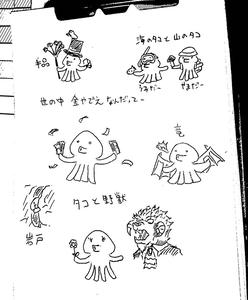 手品
海のタコと山のタコ
うみだー
やまだー
世の中 金やでえ なんだってー
竜
岩戸
タコと野獣